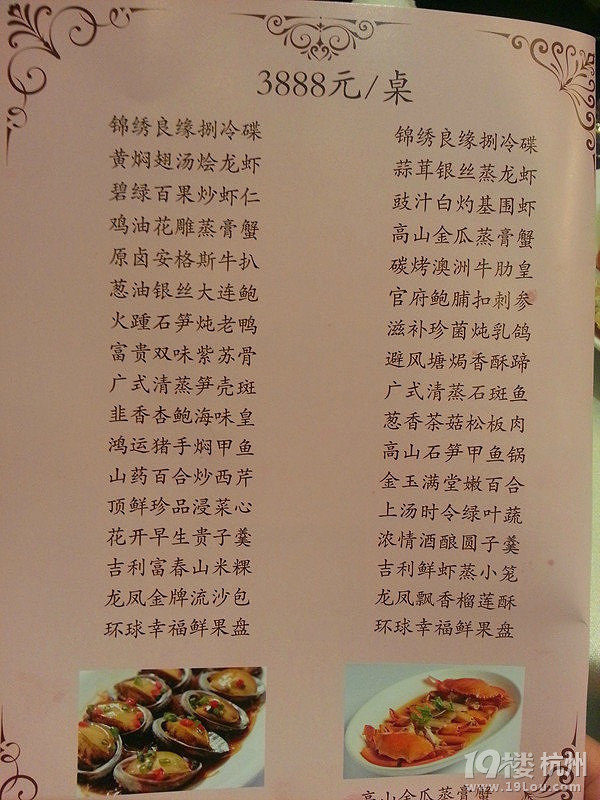 3888元/桌
锦绣良缘捌冷碟
黄焖翅汤烩龙虾
碧绿百果炒虾仁
鸡油花雕蒸膏蟹
原卤安格斯牛扒
葱油银丝大连鲍
火踵石笋炖老鸭
富贵双味紫苏骨
广式清蒸笋壳斑
韭香杏鲍海味皇
鸿运猪手焖甲鱼
山药百合炒西芹
顶鲜珍品浸菜心
花开早生贵子羹
吉利富春山米粿
龙凤金牌流沙包
环球幸福鲜果盘
锦绣良缘捌冷碟
蒜茸银丝蒸龙虾
豉汁白灼基围虾
高山金瓜蒸膏蟹
碳烤澳洲牛肋皇
官府鲍脯扣刺参
滋补珍菌炖乳鸽
避风塘焗香酥蹄
广式清蒸石斑鱼
葱香茶菇松板肉
高山石笋甲鱼锅
金玉满堂嫩百合
上汤时令绿叶蔬
浓情酒酿圆子羹
吉利鲜虾蒸小笼
龙凤飘香榴莲酥
环球幸福鲜果盘
高山金瓜蒸膏蟹
19楼杭州
www.19lou.com